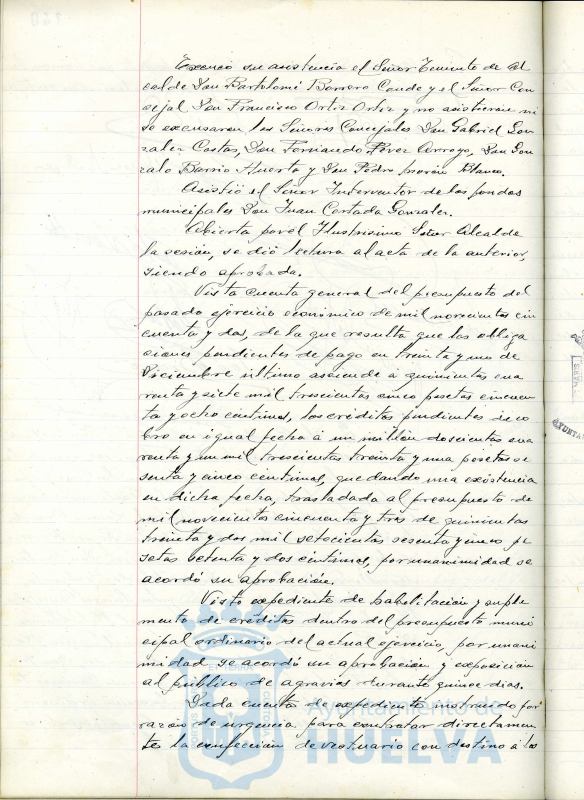 Excusó su asistencia el Señor Teniente de Al-
calde Don Bartolomé Borrero Conde y el Señor Con
cejal Don Francisco Ortiz Ortiz y no asistieron ni
se excusaron los Señores Concejales Don Gabriel Gon
zalez Costas, Don Fernando Pérez Arroyo, Don Gon
zalo Barrio Huerta y Don Pedro Morón Blanco.
Asistió el Señor Interventor de los fondos
municipales Don Juan Cortada Gonzalez.
Abierta por el Ilustrisimo Señor Alcalde
la sesión, se dió lectura al acta de la anterior,
siendo aprobada.
Vista cuenta general del presupuesto del
pasado ejercicio económico de mil novecientos cin
cuenta y dos, de la que resulta que las obliga
ciones pendientes de pago en treinta y uno de
Diciembre último asciende a quinientas cua
renta y siete mil trescientas cinco pesetas cincuen
ta y ocho centimos, los créditos pendientes de co
bro en igual fecha á un millón doscientas cua
renta y un mil trescientas treinta y una pesetas se
senta y cinco centimos, quedando una existencia
en dicha fecha, trasladada al presupuesto de
mil novecientos cincuenta y tres de quinientas
treinta y dos mil setecientas sesenta y cinco pe
setas setenta y dos centimos, por unanimidad se
acordó su aprobación.
Visto expediente de habilitación y suple
mento de creditos dentro del presupuesto muni
cipal ordinario del actual ejercicio, por unani
midad se acordó su aprobación y exposición
al público de agravios durante quince dias.
Dada cuenta de expediente instruido por
razón de urgencia para contratar directamen-
te la confección de vestuario con destino á los
Ayuntamiento de
HUELVA